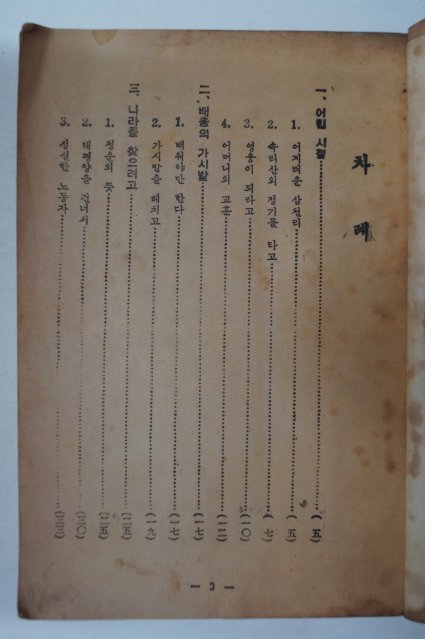 차례
一、어린 시절……(五)
1. 어지러운 삼천리……(五)
2. 속리산의 정기를 타고……(七)
3. 영웅이 되라고……(一〇)
4. 어머니의 교훈……(一二)
二、배움의 가시밭……(一七)
1. 배워야만 한다……(一七)
2. 가시밭을 헤치고……(一九)
三、나라를 찾으려고……(二五)
1. 청운의 뜻……(二五)
2. 태평양을 건너서……(三〇)
3. 성실한 노동자……(三三)
— 3 —